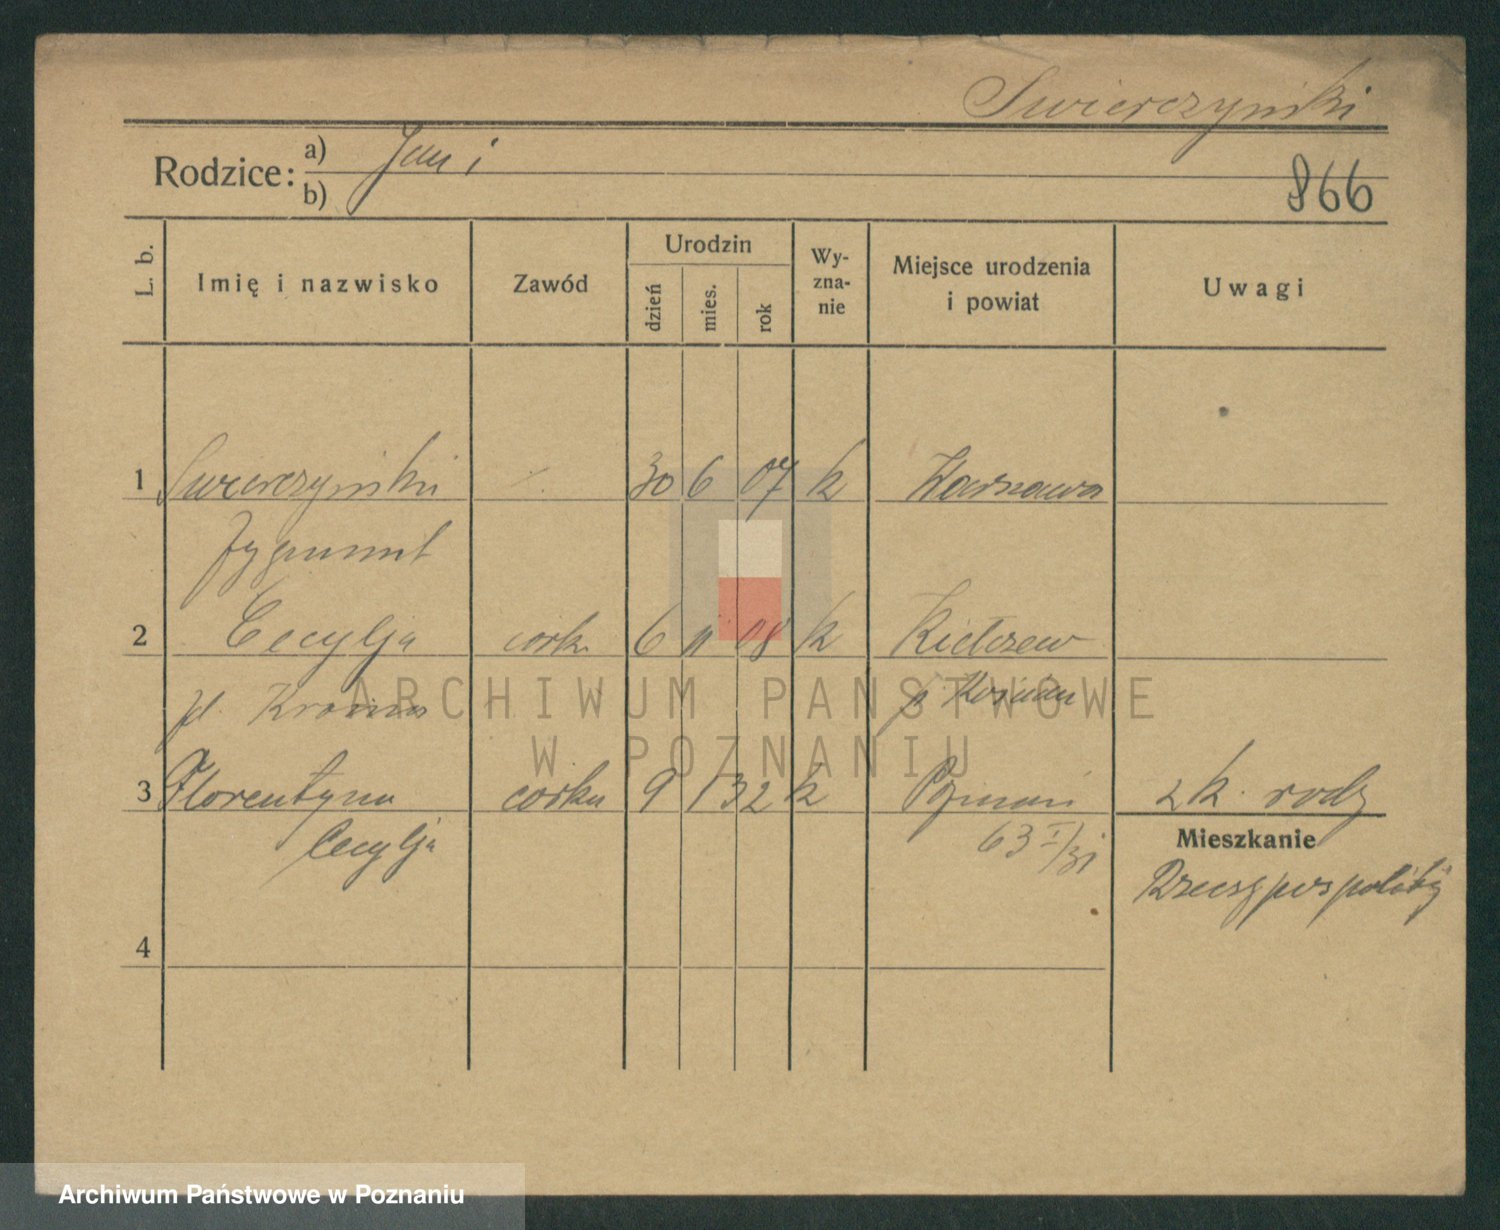 Swierczynski
Rodzice: a) Jan i
b)
866
L. b. Imię i nazwisko Zawód Urodzin dzień mies. rok Wy-zna-nie Miejsce urodzenia i powiat Uwagi
1 Swierczynski 30 6 07 k Warszawa
Zygmunt
2 Cecylja cork. 6 11 08 k Kiełczew
p. Kościan
3 Florentyna corka 9 1 32 k Poznań 2 k. rodz
Cecylja 63 I/31
Mieszkanie
Rzeczypospolitej
4
ARCHIWUM PAŃSTWOWE
W POZNANIU
Archiwum Państwowe w Poznaniu